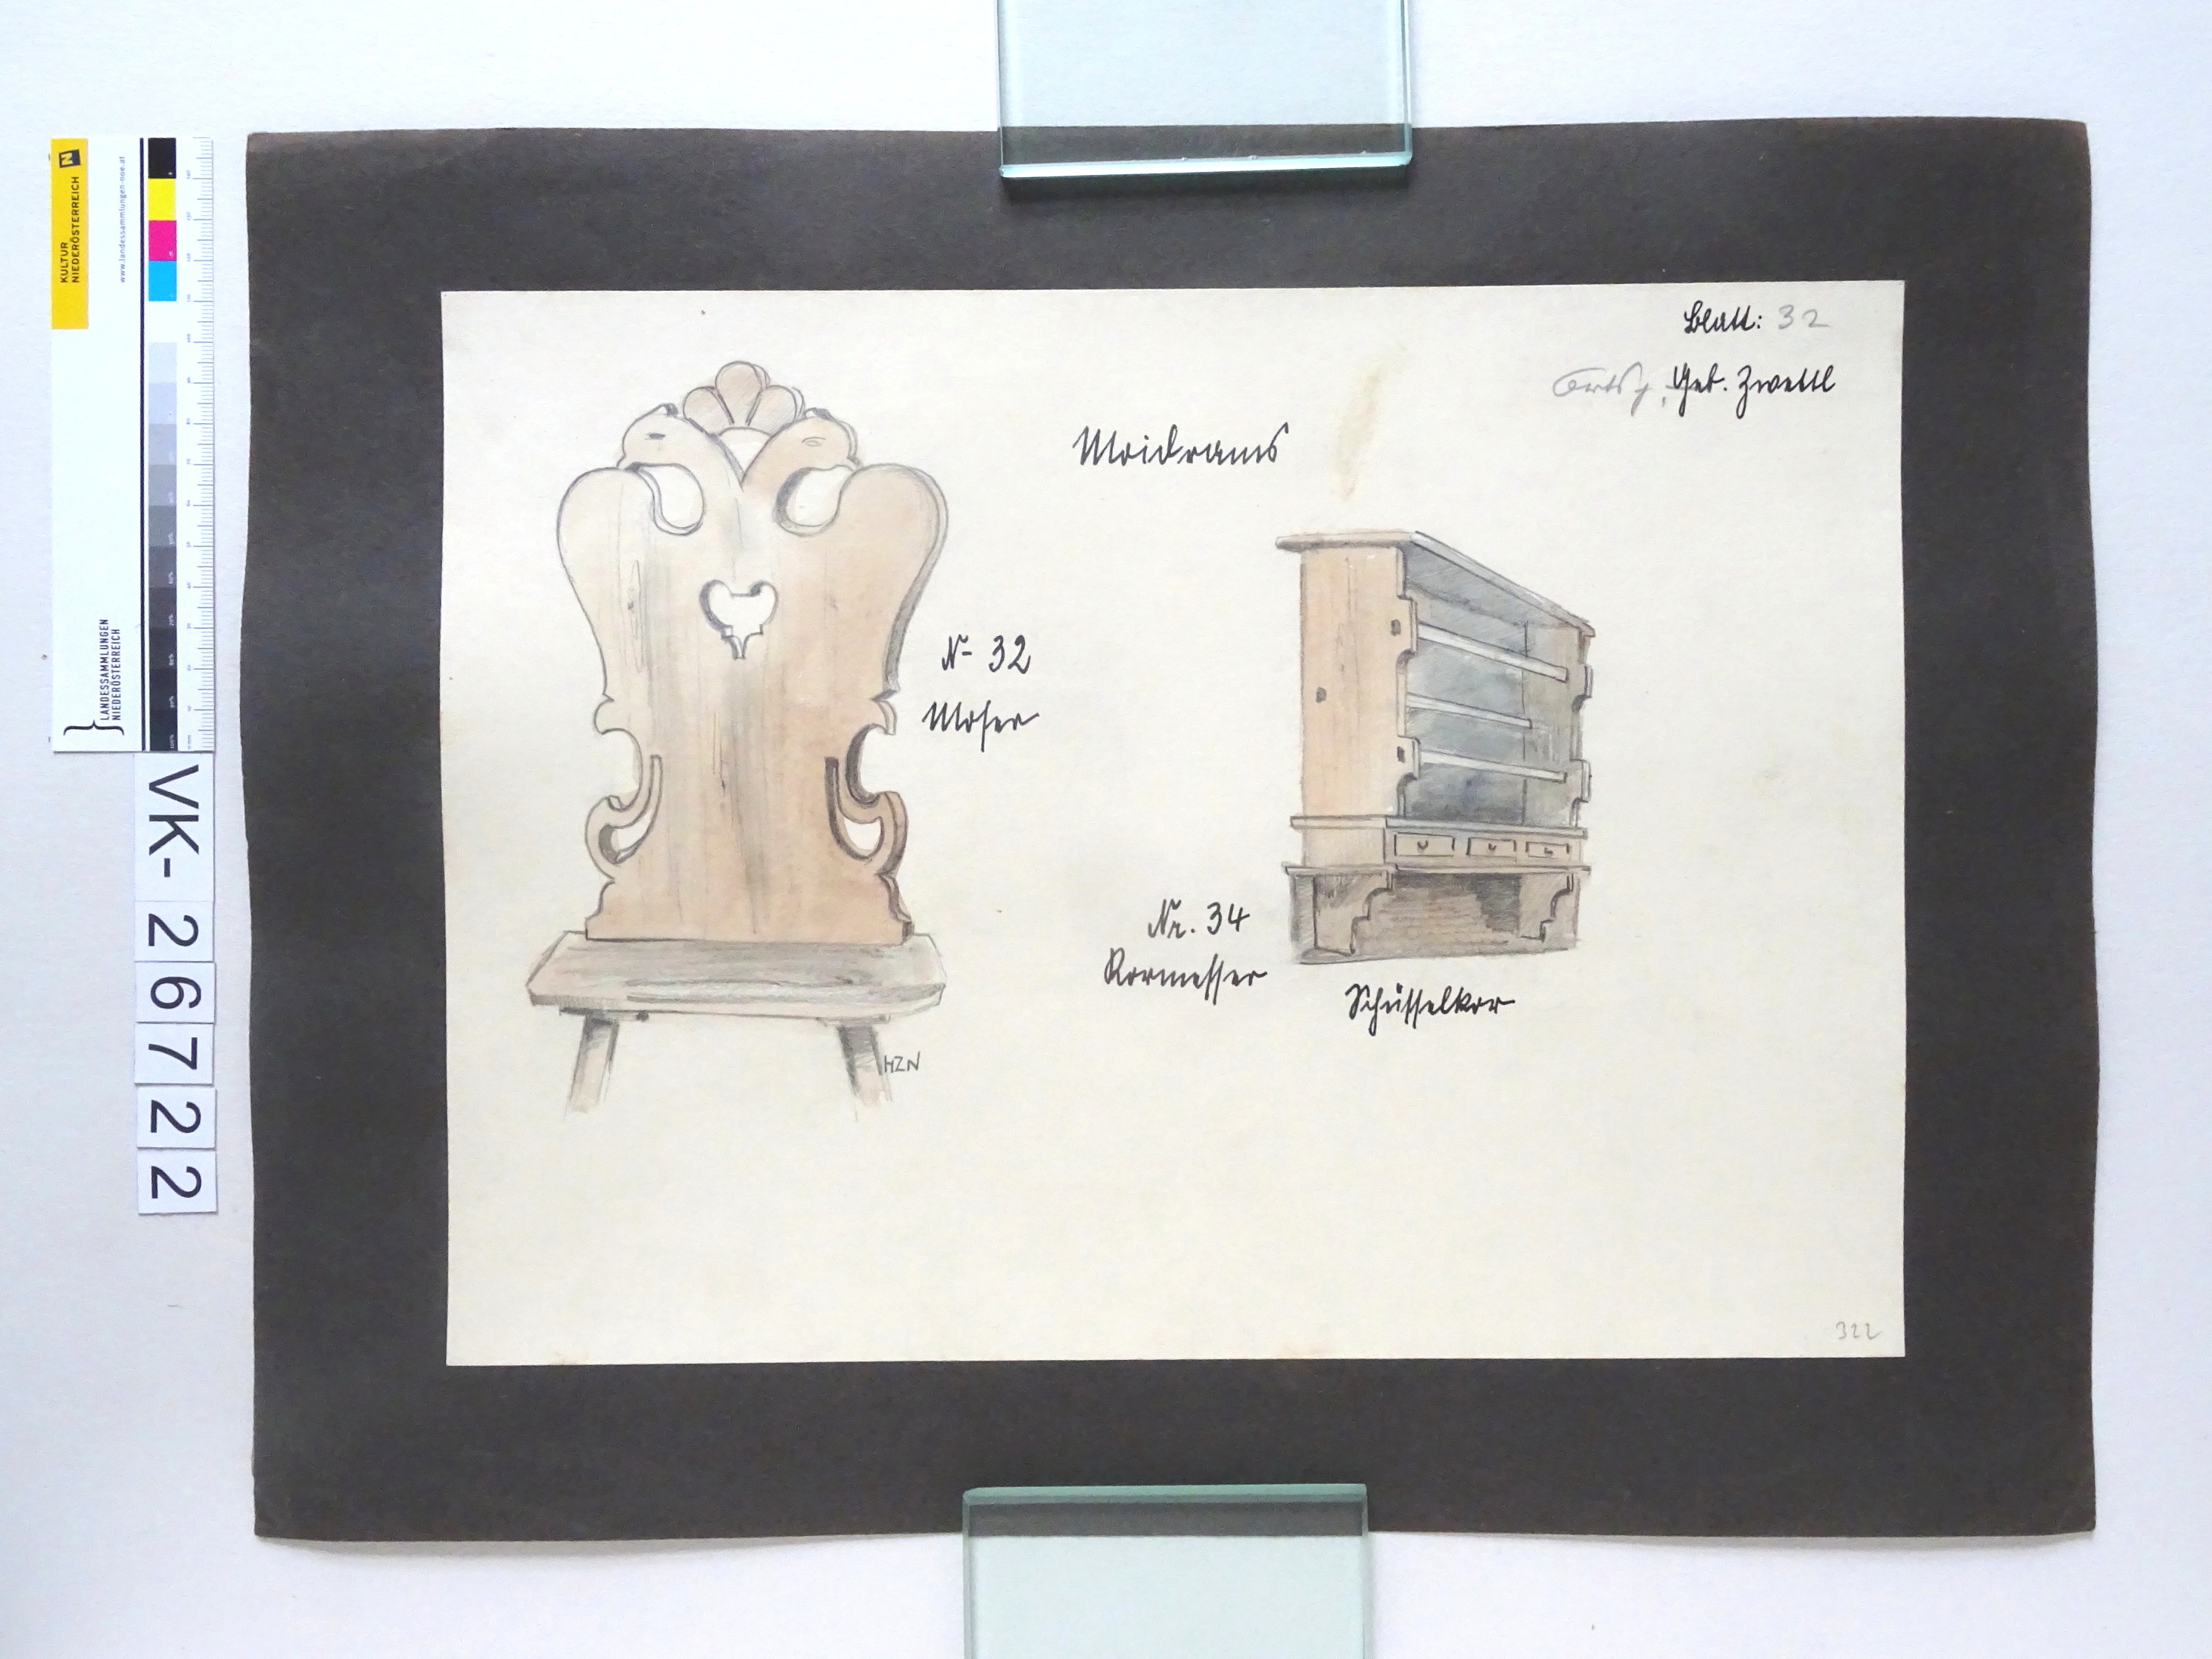 Blatt: 32
Geb. Zwettl
Moidrams
Nr 32
Moser
Nr. 34
Kormesser
Schüsselkor
HZN
322
KULTUR
NIEDERÖSTERREICH
N
www.landessammlungen-noe.at
LANDESSAMMLUNGEN
NIEDERÖSTERREICH
VK-26722